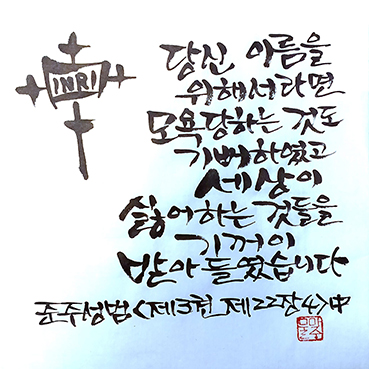 INRI
당신 이름을
위해서라면
모욕당하는 것도
기뻐하였고
세상이
싫어하는 것들을
기꺼이
받아들였습니다
준주성범<제3권_제22장4>中